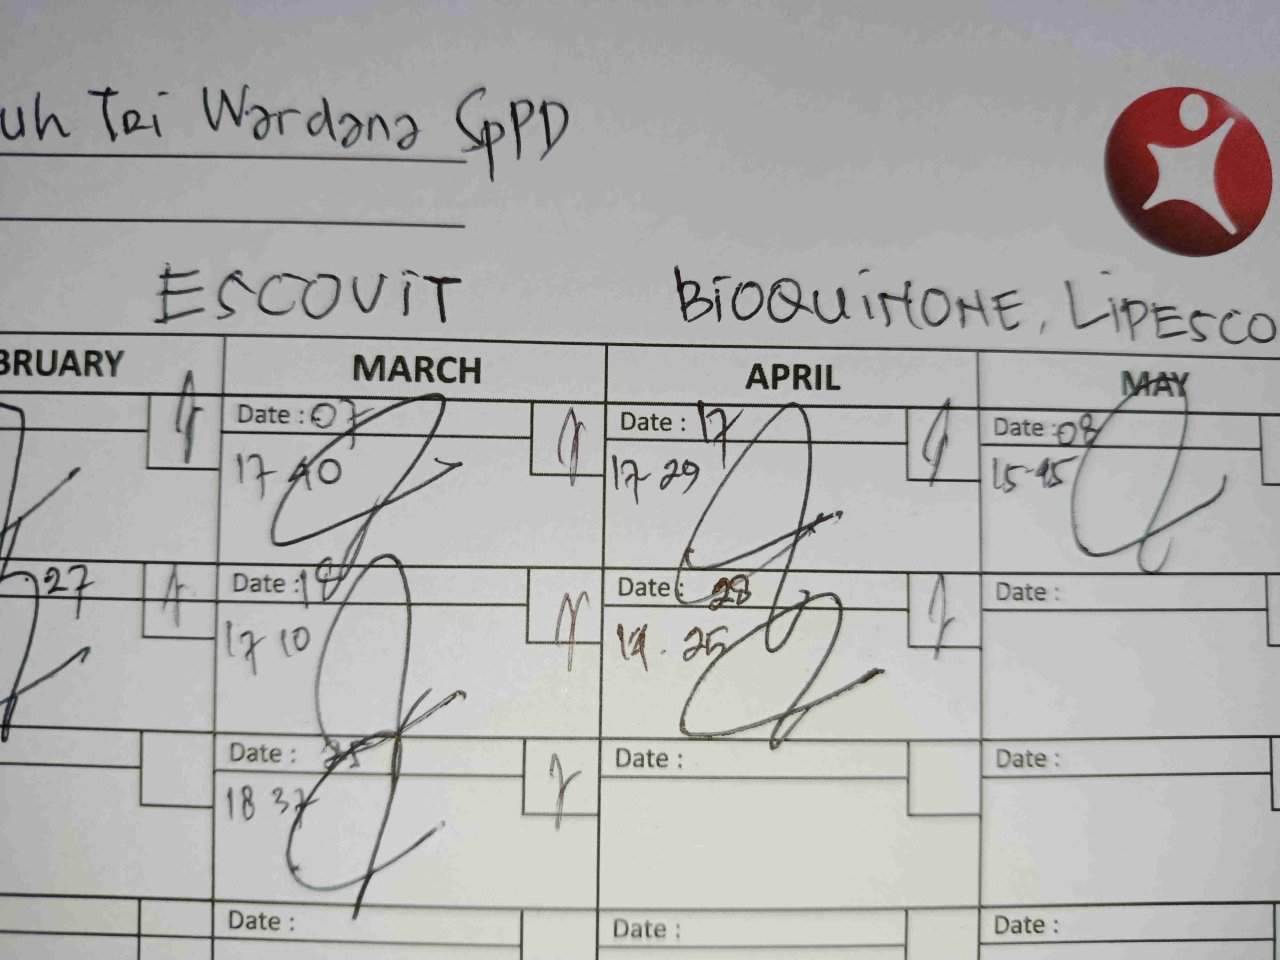 uh Tri Wardana SpPD
ESCOVIT BIOQUINONE, LIPESCO
BRUARY MARCH APRIL MAY
Date : 07 Date : 17 Date : 08
17 40 17 29 15-45
27 Date : 18 Date : 28
Date :
17 10 25
Date : 25 Date : Date :
18 37
Date : Date : Date :